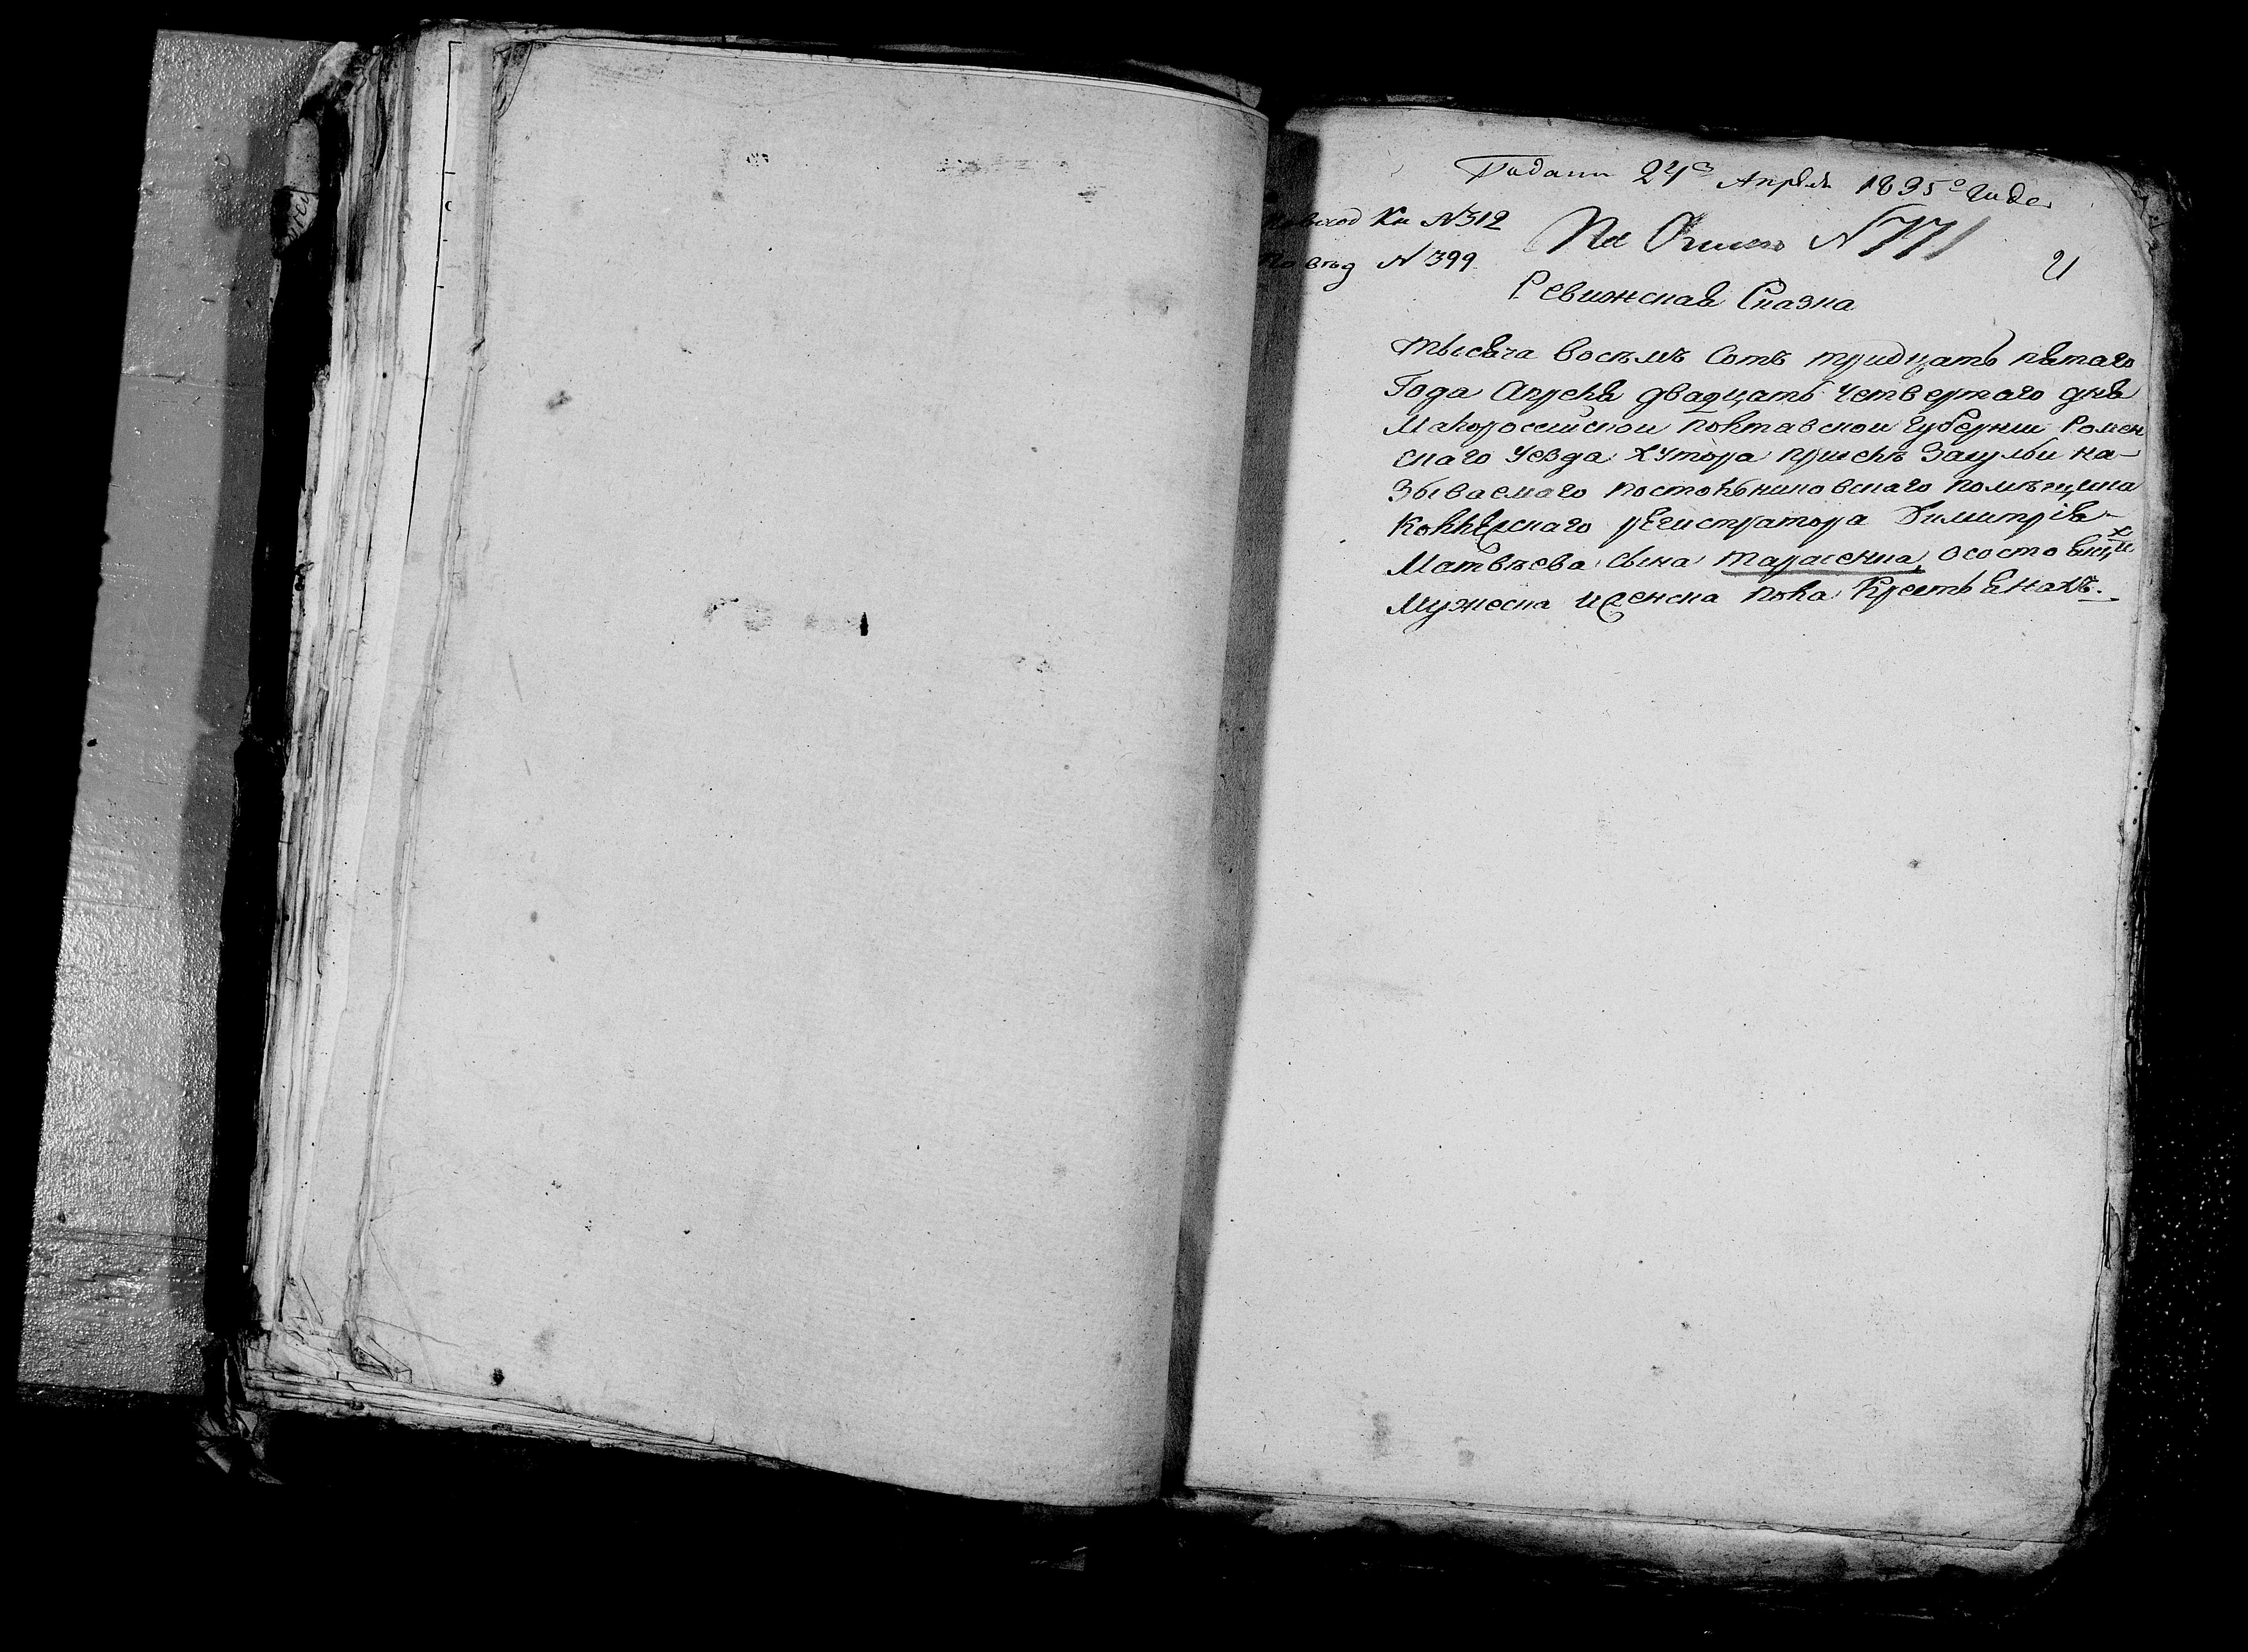 Подана 24го Апреля 1835го Года
По вход Кн №312
По Описи № 771
По вѣд № 399
Ревижская Сказка
Тысяча восѣмъ Сотъ тридцать пятаго
Года Апреля двадцать четвертаго дня
Малоросийской полтавской губернии Ромен
скаго уезда хутора присѣлѣ Засульи на-
зываемаго постольниковскаго помѣщика
Коллежскаго регистратора Димитрія
Матвѣева сына Тарасенка, о состоящихъ
Мужеска и женска пола Крестьянахъ.